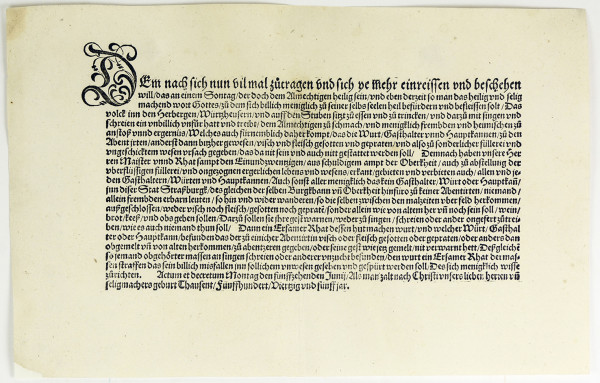 DEm nach sich nun vil mal zůtragen vnd sich ye mehr einreissen vnd beschehen
will/das an einem Sontag/der doch dem Almechtigen heilig sein/vnd eben derzeit so man das heilig vnd selig
machend wort Gottes/zů dem sich billich menigklich zů seiner selbs seelen heil befürdern vnd befleissen solt/Das
volck inn den Herbergen/Würtzheusern/vnd auff den Stuben sitzt zů essen vnd zů trincken/vnd darzů mit singen vnd
schreien ein vnbillich vnfůr hatt vnd treibt/dem Almechtigen zů schmach/vnd menigklich frembden vnd heimischen zů
anstoß vnnd ergernüß/Welches auch fürnemblich daher kompt/das die Würt/Gasthalter vnnd Hauptkannen/zů den
Abent irten/anderst dann bitzher gewesen/visch vnd fleisch gesotten vnd gepraten/vnd also zů sonderlicher füllerei vnd
vngeschicktem wesen vrsach gegeben/das da nit sein vnd auch nitt gestattet werden soll/ Demnach haben vnsere Her
ren Maister vnnd Rhat sampt den Einundzwentzigen/aus schuldigem ampt der Oberkeit/auch zů abstellung der
vberflüssigen füllerei/vnd angezognen ergerlichen lebens vnd wesens/erkant/gebieten vnd verbieten auch/allen vnd je-
den Gasthaltern/Würten vnd Hauptkannen/Auch sonst aller menigklich das kein Gasthalter/Würt oder Hauptkan/
inn diser Stat Straßburg/des gleichen der selben Burgkbann vñ Oberkheit hinfüro zů keiner Abentirten/niemand/
allein frembden erbarn leuten/so hin vnd wider wandern/so die selben zwischen den malzeiten vber feld herkommen/
außgeschlossen/weder visch noch fleisch/gesotten noch gepratē/sonder allein wie von alterher vñ noch sein soll/wein/
brot/keeß/vnd obs geben sollen/Darzů sollen sie ihre gest warnen/weder zů singen/schreien oder ander ongefert zůtrei-
ben/wie es auch niemand thun soll/ Dann ein Ersamer Rhat dessen hut machen wurt/vnd welcher Würt/Gasthal
ter oder Hauptkan/befunden das der zů einicher Abentirtin visch oder fleisch gesotten oder gepraten/oder anders dan
obgemelt vñ von alten herkommen/zů abentzeren gegeben/oder seine gest wie jetz gemelt/nit verwarnt hett/Desgleichē
so jemand obgehörter massen an singen schreien oder anderer vnzucht befunden/den wurt ein Ersamer Rhat der mas-
sen straffen das sein billich misfallen inn sollichem vnwesen gesehen vnd gespürt werden soll/Des sich menigklich wisse
zůrichten. Actum et decretum Montag den fünffzehenden Junij/Als man zalt nach Christi vnsers lieber herren vñ
seligmachers geburt Thausent/Fünffhundert/Viertzig vnd fünff jar.